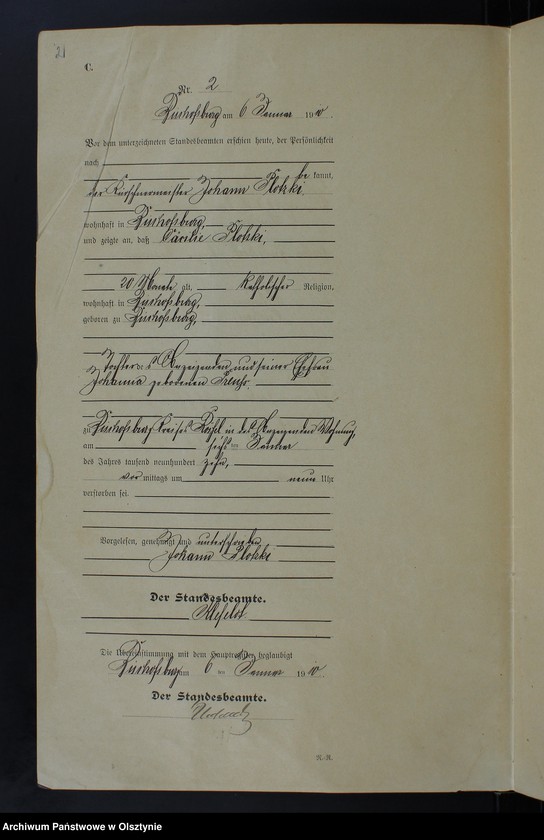 21
C.
Nr. 2
Bischofsburg am 6 Januar 1910.
Vor dem unterzeichneten Standesbeamten erschien heute, der Persönlichkeit
nach
be kannt,
der Kürschnermeister Johann Plotzki,
wohnhaft in Bischofsburg,
und zeigte an, daß Cäcilie Plotzki,
20 Monate alt, katholischer Religion,
wohnhaft in Bischofsburg,
geboren zu Bischofsburg,
Tochter des Anzeigenden und seiner Ehefrau
Johanna geborenen
zu Bischofsburg Kreises Rössel in des Anzeigenden Wohnung,
am sechsten Januar
des Jahres tausend neunhundert zehn,
vor mittags um neun Uhr
verstorben sei.
Vorgelesen, genehmigt und unterschrieben
Johann Plotzki
Der Standesbeamte.
Die Übereinstimmung mit dem Hauptregister beglaubigt
Bischofsburg am 6 ten Januar 1910.
Der Standesbeamte.
Archiwum Państwowe w Olsztynie